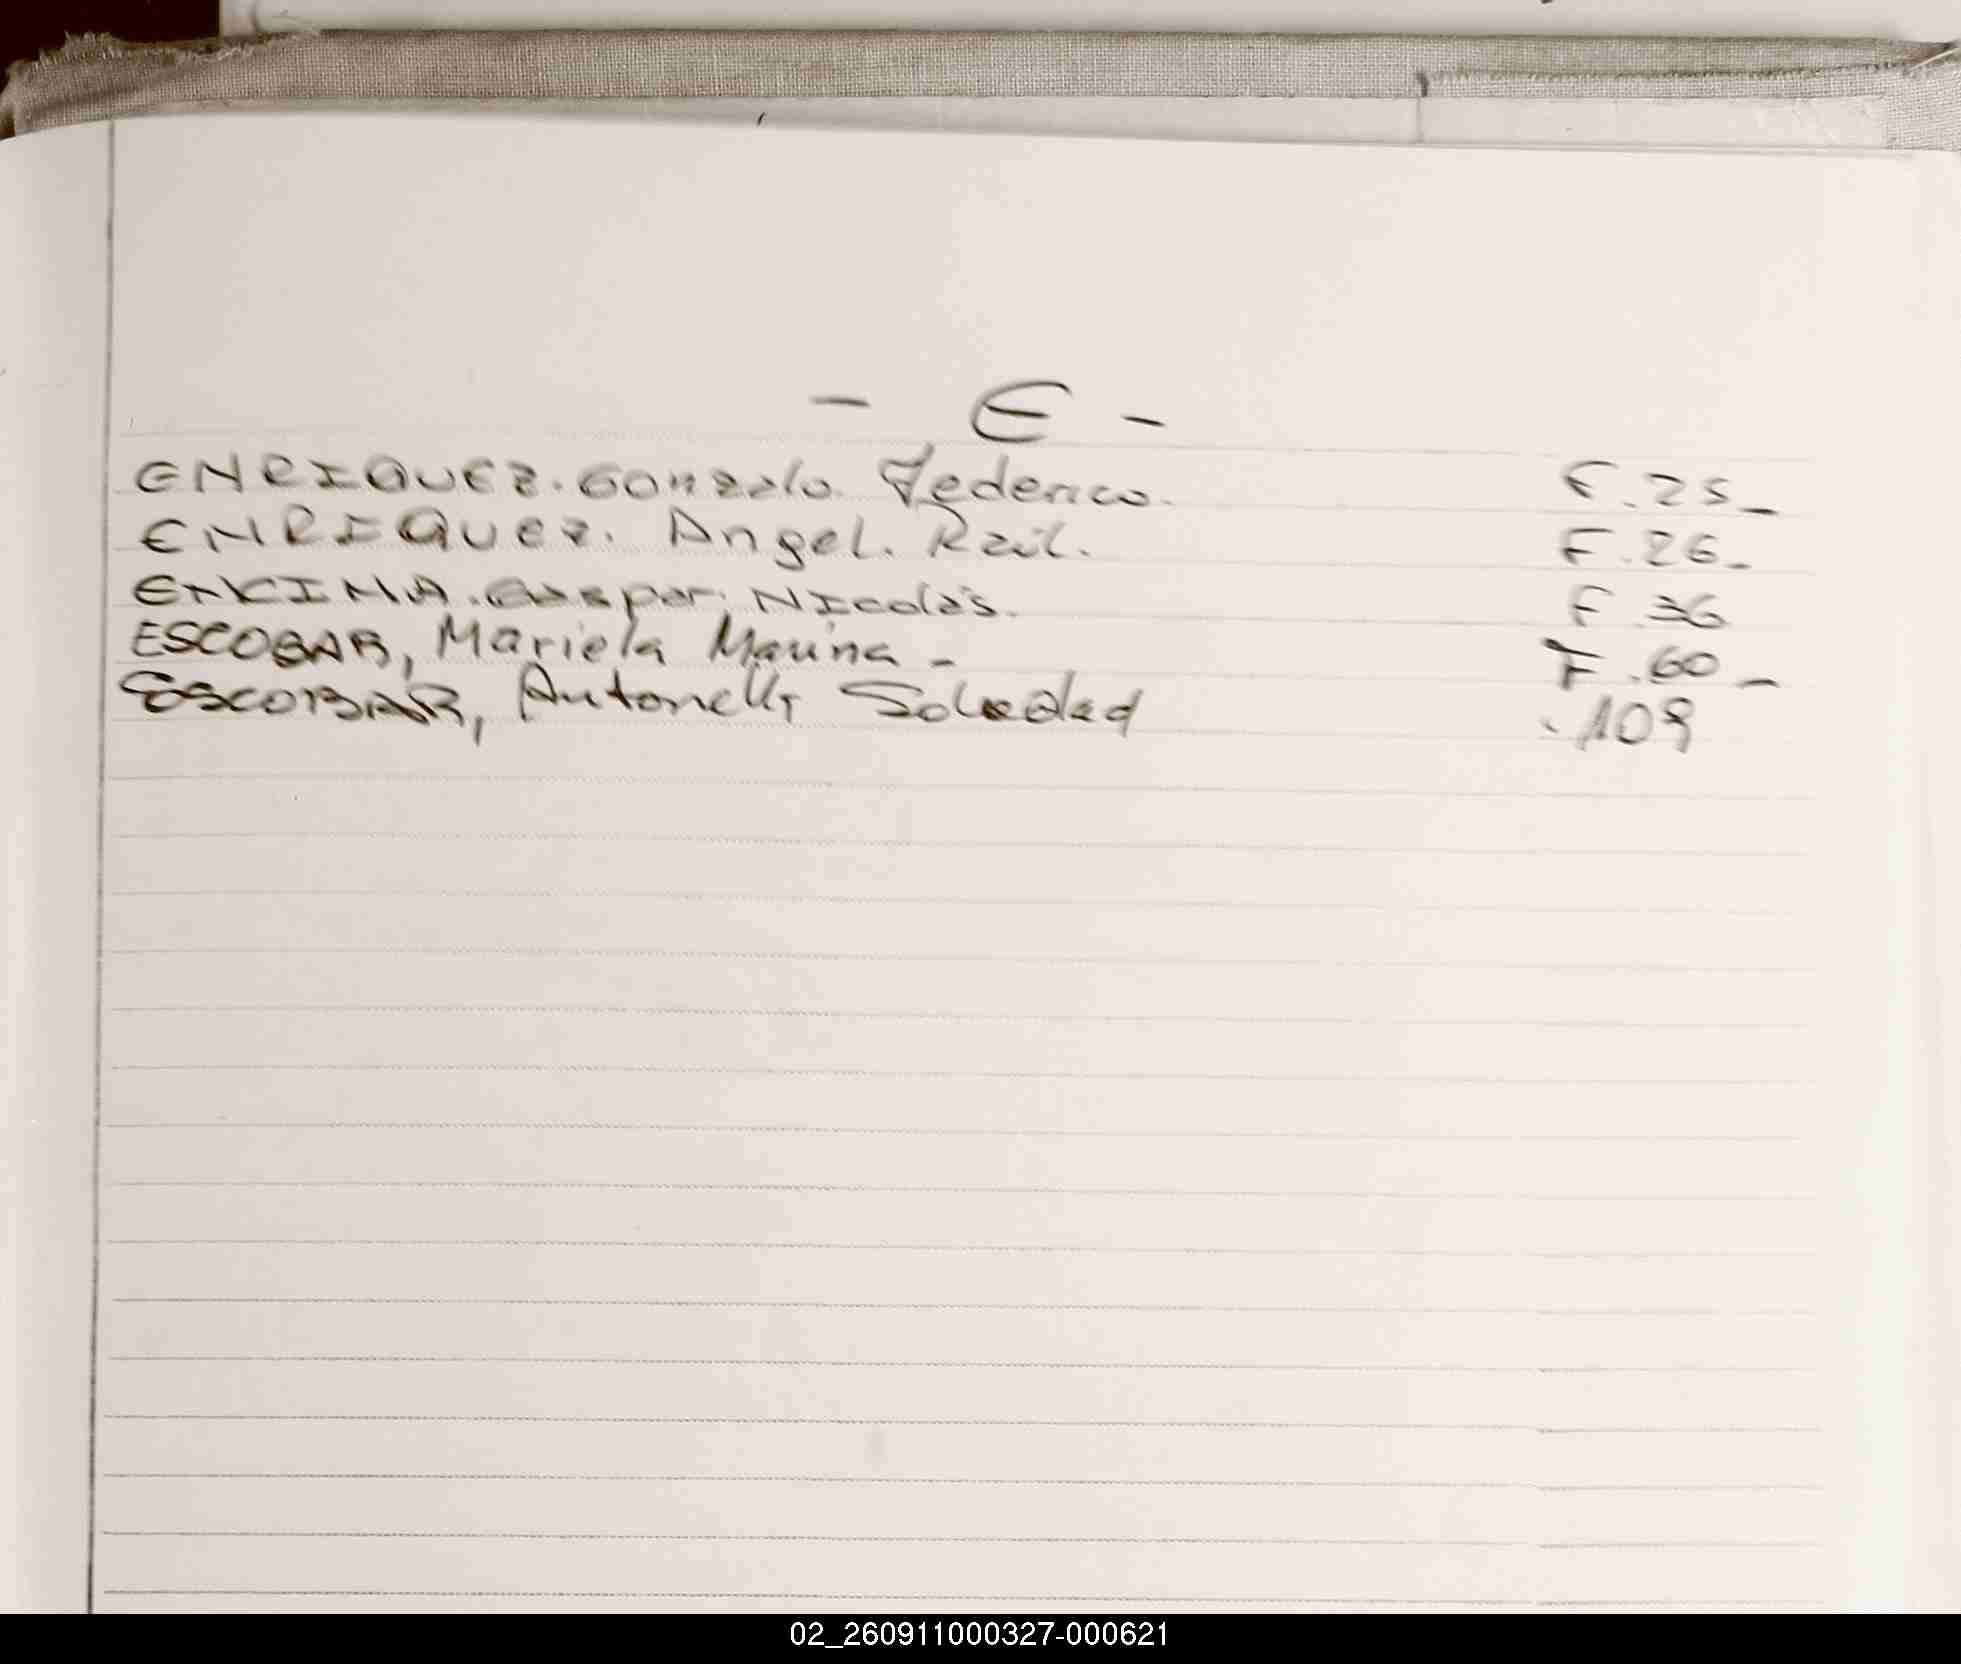 - E -
ENRIQUEZ. Gonzalo. Federico. F. 25_
ENRIQUEZ. Angel. Raúl. F. 26_
ENCINA. Gaspar. Nicolás. F. 36
ESCOBAR, Mariela Marina - F. 60_
ESCOBAR, Antonella Soledad . 109
02_260911000327-000621